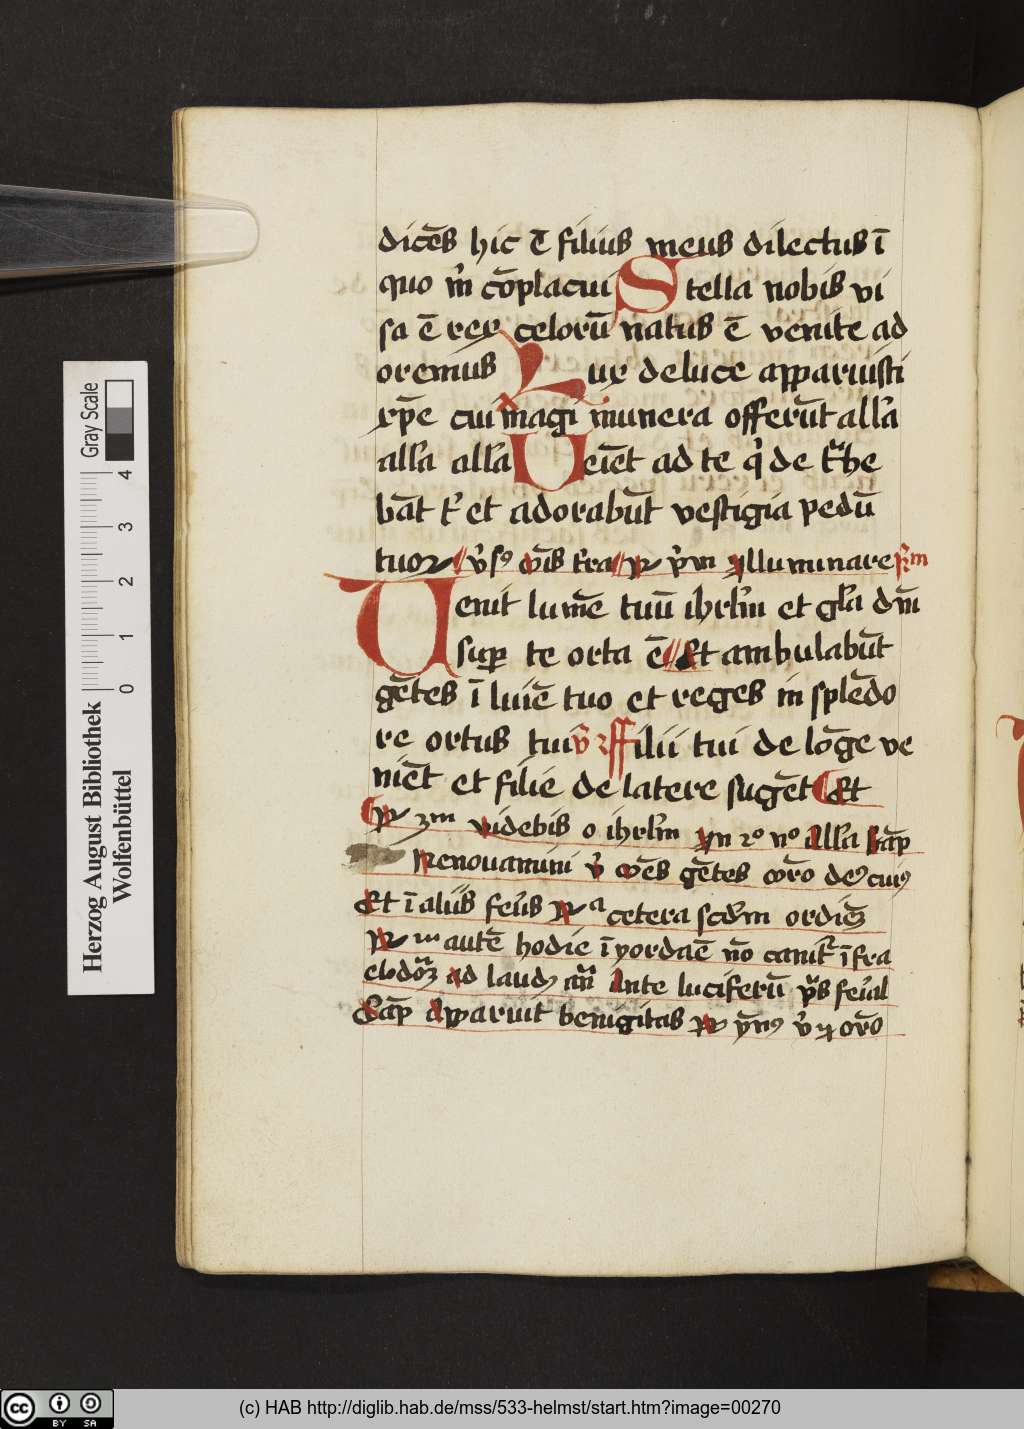 dicēs hic ē filius meus dilectus ī
quo m̄ cōplacui Stella nobis vi
sa ē rex celorū natus ē venite ad
oremus Lux de luce apparuisti
xp̄e cui magi munera offerūt all'a
all'a all'a Ueiēt ad te q̇ de t̄he
bāt t' et adorabūt vestigia pedū
tuoꝝ v̄ ōīs t'ra p̄m Illuminare
Uenit lumē tuū ihrl'm et gl'a dm̄
sup̄ te orta ē Et ambulabūt
gētes ī luiē tuo et reges in splēdo
re ortus tui v̄ ffilii tui de lōge ve
niēt et filie de latere sugēt Et
videbis o ihrl'm Jn 2º nº all'a Cap̄
Renouamini v̄ Om̄ēs gētes orō deꝰ cuiꝰ
Et ī aliis cetera scd'm ordiēʒ
autē hodie ī yordaē nō canit' īfra
ad laudꝫ Ante luciferū p̄s
Cap̄ Apparuit benigitas v̄ orō
Herzog August Bibliothek
Wolfenbüttel
Gray Scale
0 1 2 3 4
cc BY SA
(c) HAB http://diglib.hab.de/mss/533-helmst/start.htm?image=00270